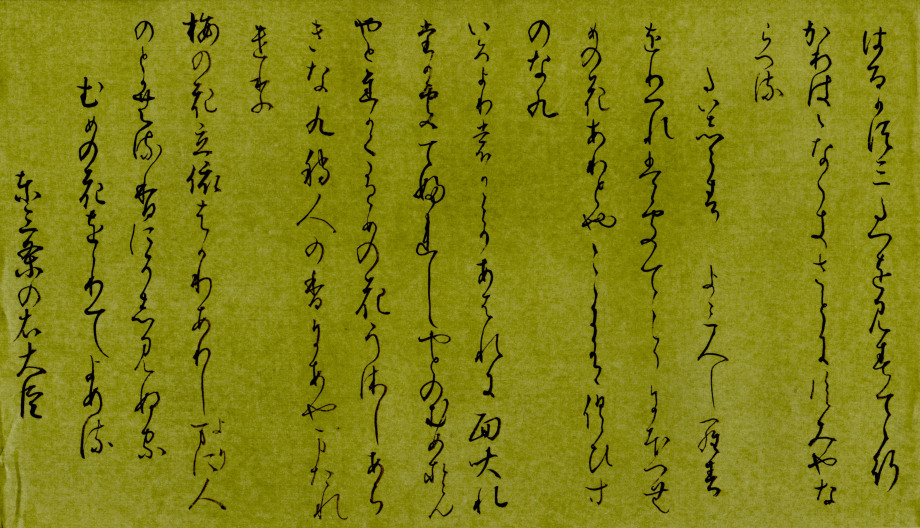 はるかすみたつを見すてゝ行
かりはゝなゝきさとにすみやな
らへる
たいしらす　よみ人しらす
をりつれはそてこそにほへむ
めの花ありとやこゝにうくひす
のなく
いろよりもかこそあはれと
たかそてふれしやとのむめそも
やとちかくむめの花うゑしあち
きなく待人の香にあやまたれ
けり
梅の花立依はかりありしより人
のとかむる香にそしみぬる
むめの花ををりてよめる
東三条の左大臣